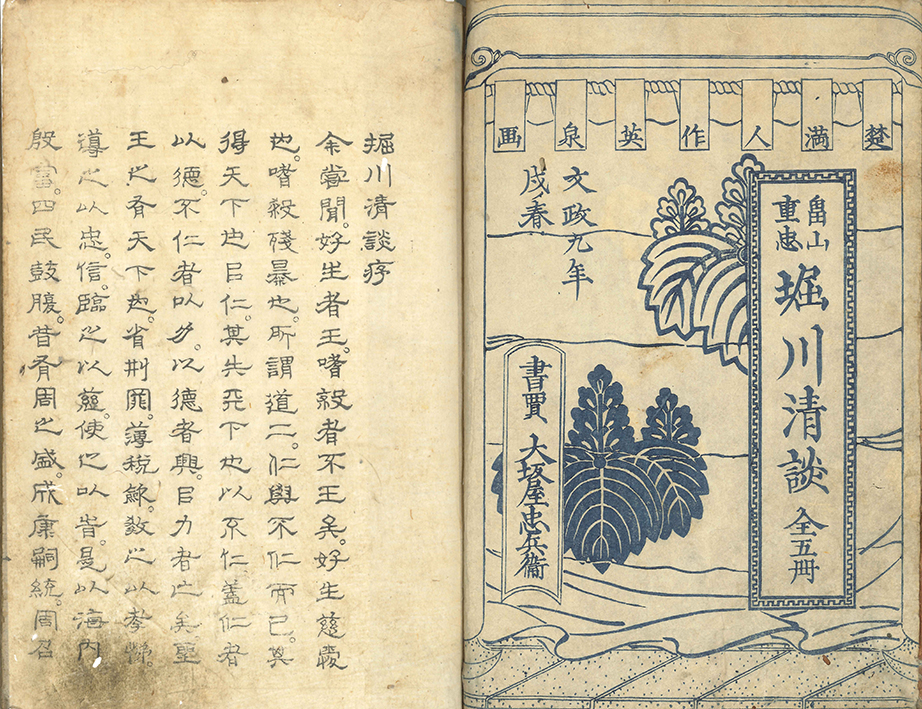 楚満人作英泉画
畠山
重忠
堀川清談 全五冊
文政九年
戌春
書賈 大坂屋忠兵衞
堀川清談序
余嘗聞。好生者王。嗜殺者不王矣。好生慈愛
也。嗜殺殘暴也。所謂道二。仁與不仁而已。其
得天下也㠯仁。其失天下也以不仁。蓋仁者
以德。不仁者以力。以德者興。㠯力者亡矣。聖
王之有天下也。省刑罰。薄税斂。敎之以孝悌。
導之以忠。信。臨之以。使之㠯旹。是以海内
殷富。四民鼓腹。昔有周之盛。成康嗣統。周召